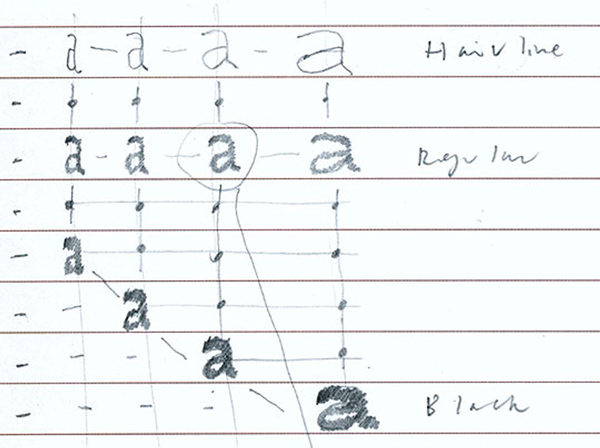 a a a a Hairline
a a a a Regular
a
a
a
a Black